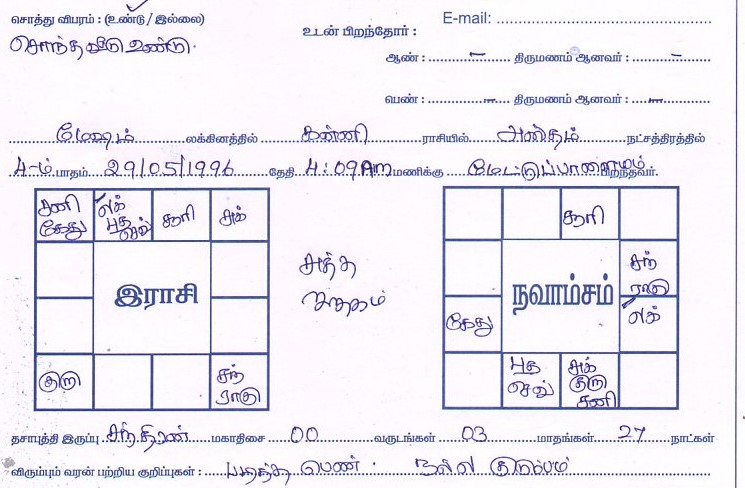 சொத்து விபரம் : (உண்டு / இல்லை)
சொந்த வீடு உண்டு.
E-mail:
உடன் பிறந்தோர் :
ஆண் : – திருமணம் ஆனவர் : –
பெண் : – திருமணம் ஆனவர் : –
மேஷம் லக்கினத்தில் கன்னி ராசியில் அஸ்தம் நட்சத்திரத்தில்
4-ம் பாதம் 29/05/1996 தேதி 4:09 Am மணிக்கு மேட்டுப்பாளையம் பிறந்தவர்.
சனி கேது
லக் புத செவ்
சூரி
சுக்
இராசி
குரு
சந் ராகு
சுத்த ஜாதகம்
சூரி
சந் ராகு
நவாம்சம்
கேது
லக்
புத செவ்
சுக் குரு சனி
தசாபுத்தி இருப்பு சந்திரன் மகாதிசை 00 வருடங்கள் 03 மாதங்கள் 27 நாட்கள்
விரும்பும் வரன் பற்றிய குறிப்புகள் : படித்த பெண். நல்ல குடும்பம்